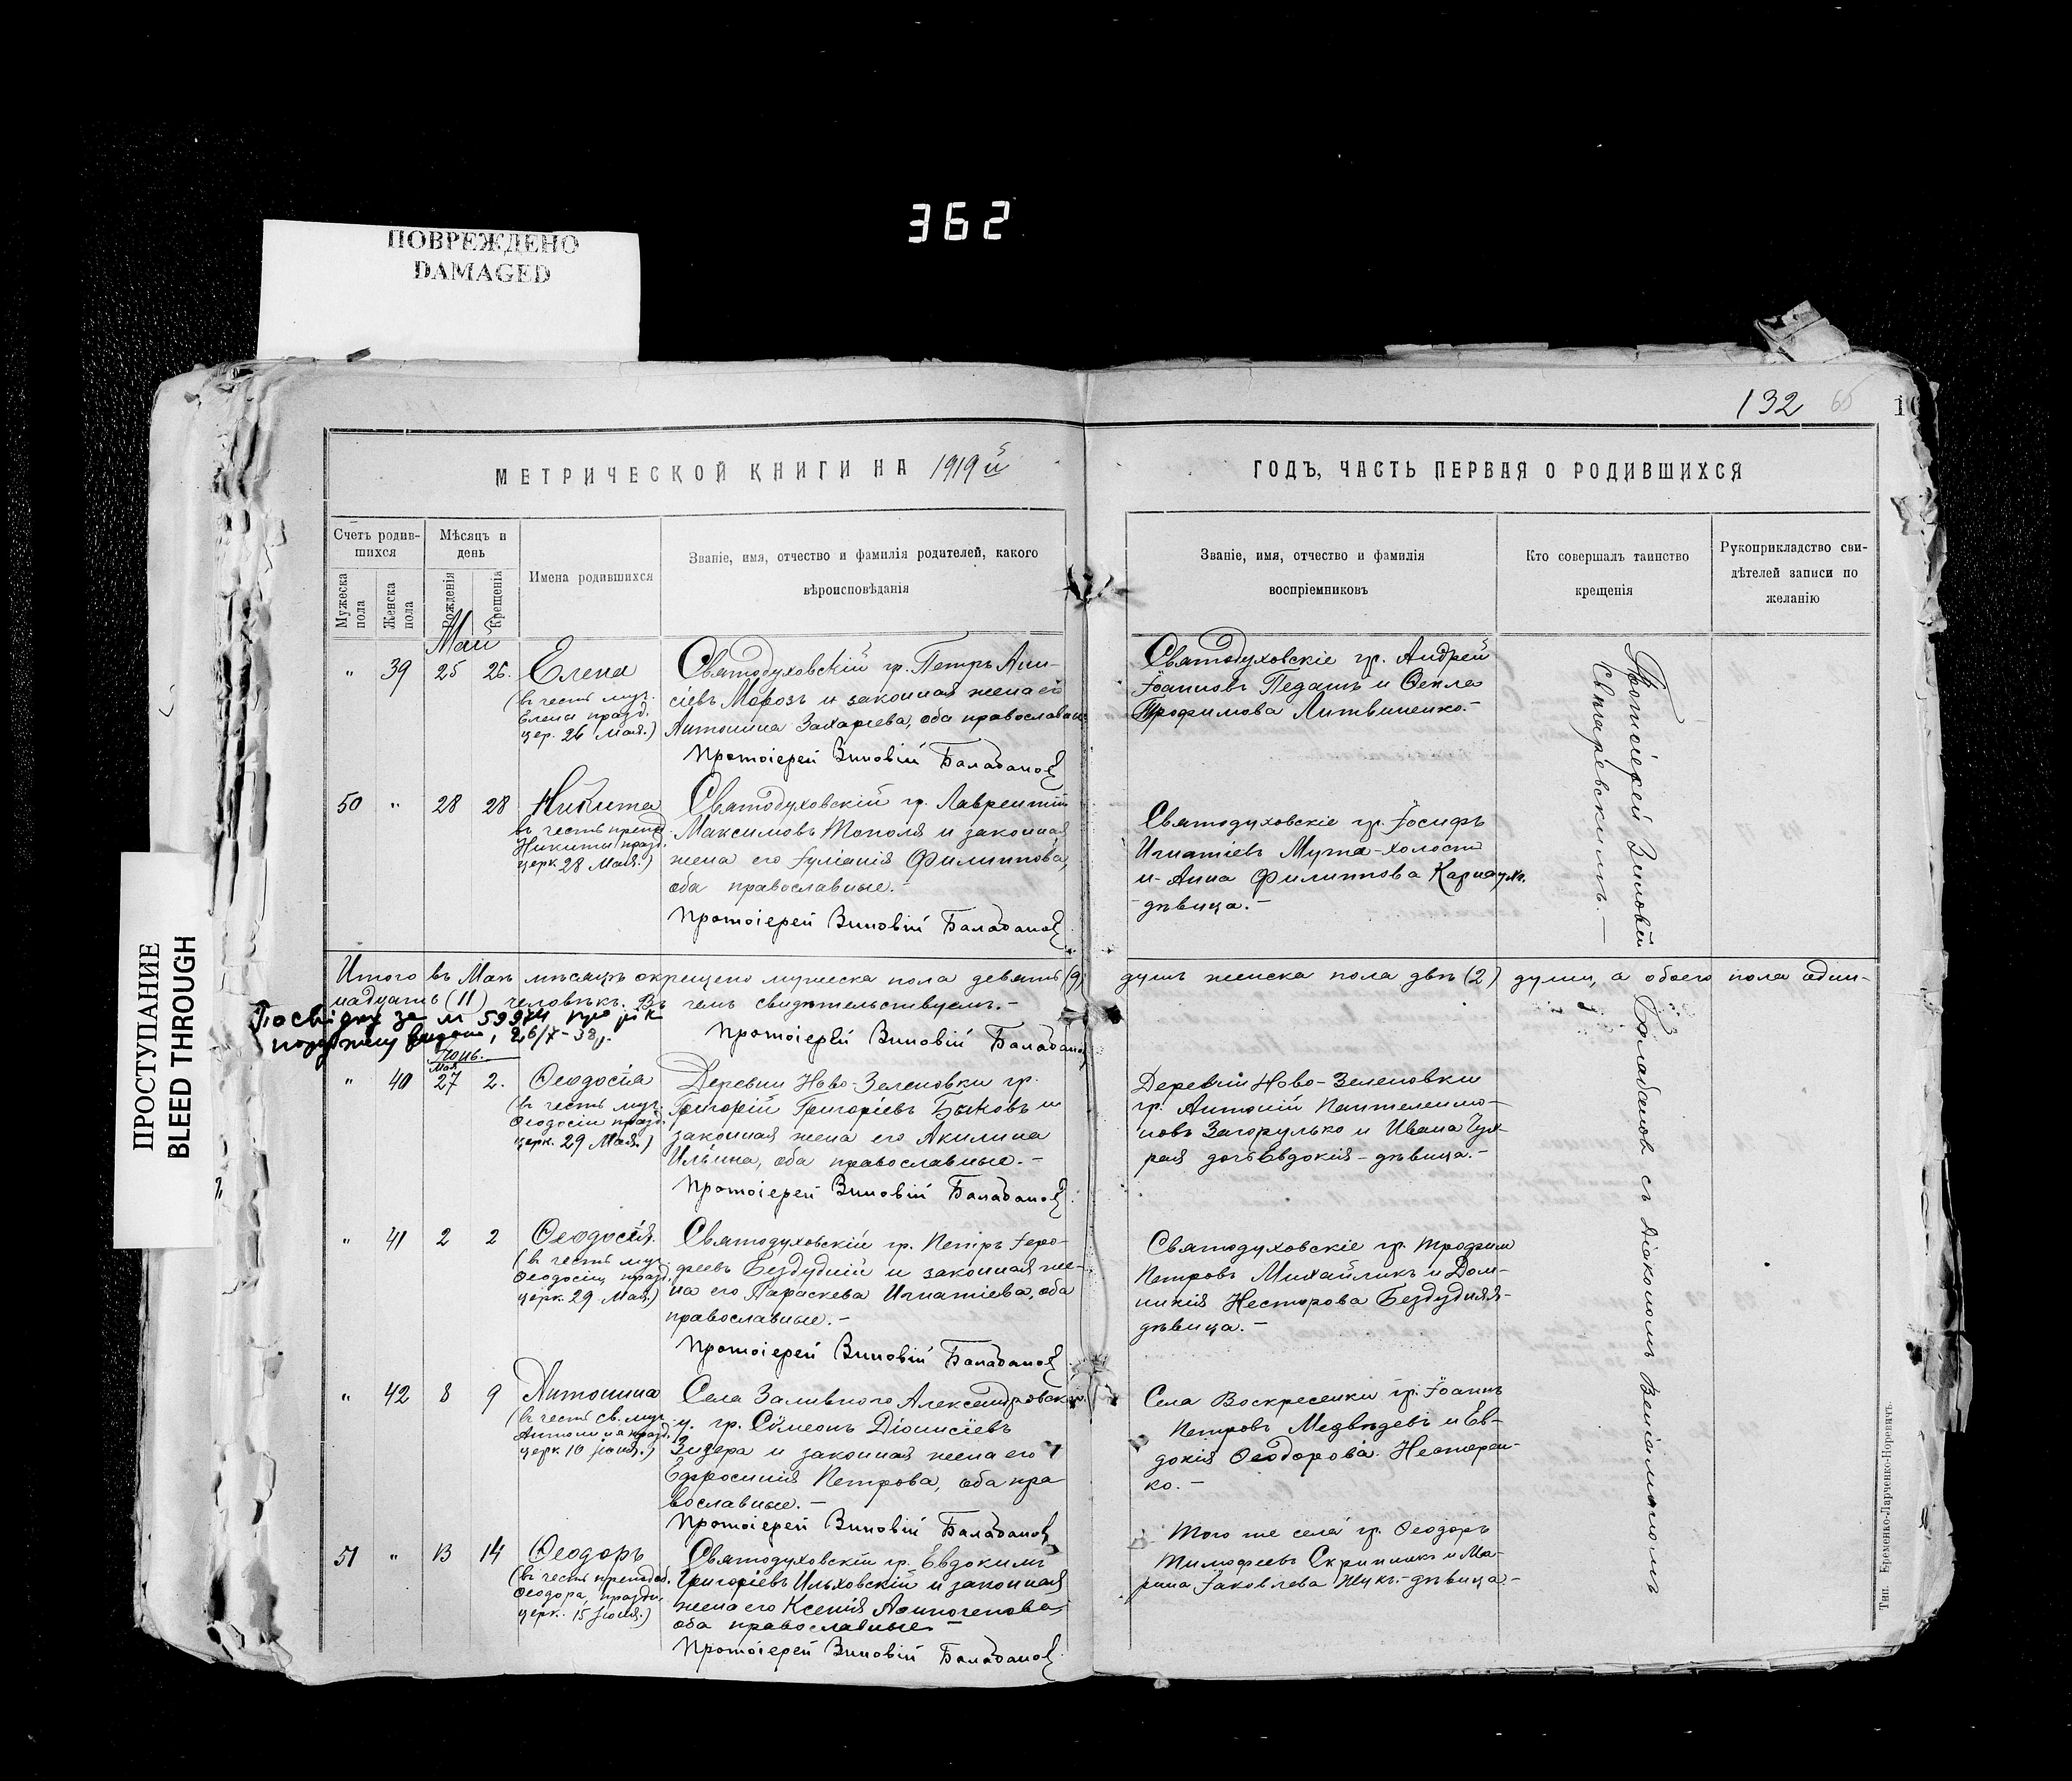 362
ПОВРЕЖДЕНО
DAMAGED
ПРОСТУПАНИЕ
BLEED THROUGH
132
65
МЕТРИЧЕСКОЙ КНИГИ НА 1919 й
Счетъ родив-
шихся
Мужеска
пола
Женска
пола
Мѣсяцъ и
день
Рожденія
Крещенія
Имена родившихся
Званіе, имя, отчество и фамилія родителей, какого
вѣроисповѣданія
Май
" 39 25 26.
Елена
(въ честь муч.
Елены празд.
цер. 26 Мая.)
Святодуховскій гр. Петръ Ани-
сіевъ Морозъ и законная жена его
Антонина Захаріева, оба православн.
Протоіерей Зиновій Балабановъ
50 " 28 28
Никита
въ честь препод.
Никиты празд.
церк. 28 Мая.)
Святодуховскій гр. Лаврентій
Максимовъ Тополя и законная
жена его Іуліанія Филиппова,
оба православные.-
Протоіерей Зиновій Балабановъ
Итого въ Маѣ мѣсяцѣ окрещено мужеска пола девять (9)
надцать (11) человѣкъ. Въ чемъ свидѣтельствуемъ.-
Протоіерей Зиновій Балабановъ
Посвідку за № 59974 про рік
26/7-38р.
Іюнь.
Мая
" 40 27 2.
Ѳеодосія
(въ честь муч.
Ѳеодосіи празд.
церк. 29 Мая.)
Деревни Ново-Зеленовки гр.
Григорій Григоріевъ Быковъ и
законная жена его Акилина
Ильина, оба православные.-
Протоіерей Зиновій Балабановъ
" 41 2 2
Ѳеодосія.
(въ честь муч.
Ѳеодосіи празд.
церк. 29 Мая.)
Святодуховскій гр. Петръ Іеро-
феевъ Бездудній и законная же-
на его Параскева Игнатіева, оба
православные.-
Протоіерей Зиновій Балабановъ
" 42 8 9
Антонина
(въ честь св. муч.
Антонины празд.
церк. 10 Іюня.)
Села Заливного Александровск.
у. гр. Сѵмеонъ Діонисіевъ
Зидера и законная жена его
Ефросинія Петрова, оба пра
вославные.-
Протоіерей Зиновій Балабановъ
51 " 13 14
Ѳеодоръ
(въ честь преподоб.
Ѳеодора, праздн.
церк. 15 Іюня.)
Святодуховскій гр. Евдокимъ
Григоріевъ Ильховскій и законная
жена его Ксенія Аѳиногенова,
оба православные-
Протоіерей Зиновій Балабановъ
ГОДЪ, ЧАСТЬ ПЕРВАЯ О РОДИВШИХСЯ
Званіе, имя, отчество и фамилія
воспріемниковъ
Кто совершалъ таинство
крещенія
Рукоприкладство сви-
дѣтелей записи по
желанію
Святодуховскіе гр. Андрей
Іоанновъ Педашъ и Ѳекла
Трофимова Литвиненко.-
Святодуховскіе гр. Іосифъ
Игнатіевъ Мута-холостъ
и Анна Филиппова Карнаухъ.
дѣвица.-
душъ женска пола двѣ (2) души, а обоего пола один-
Деревни Ново-Зеленовки
гр. Антоній Пантелеимо-
новъ Загорулько и Ивана
дочь Евдокія-дѣвица.-
Святодуховскіе гр. Трофим
Петровъ Михайликъ и Дом-
никія Несторова Бездудняя-
дѣвица.-
Села Воскресенки гр. Іоаннъ
Петровъ Медвѣдевъ и Ев-
докія Ѳеодорова. Нестерен-
ко.-
Того же села гр. Ѳеодоръ
Тимофеевъ Скрипникъ и Ма-
рина Іаковлева Жукъ-дѣвица-
Протоіерей Зиновій
Балабановъ съ діакономъ Веніаминомъ
Тип. Еременко-Ларченко-Норевичъ.